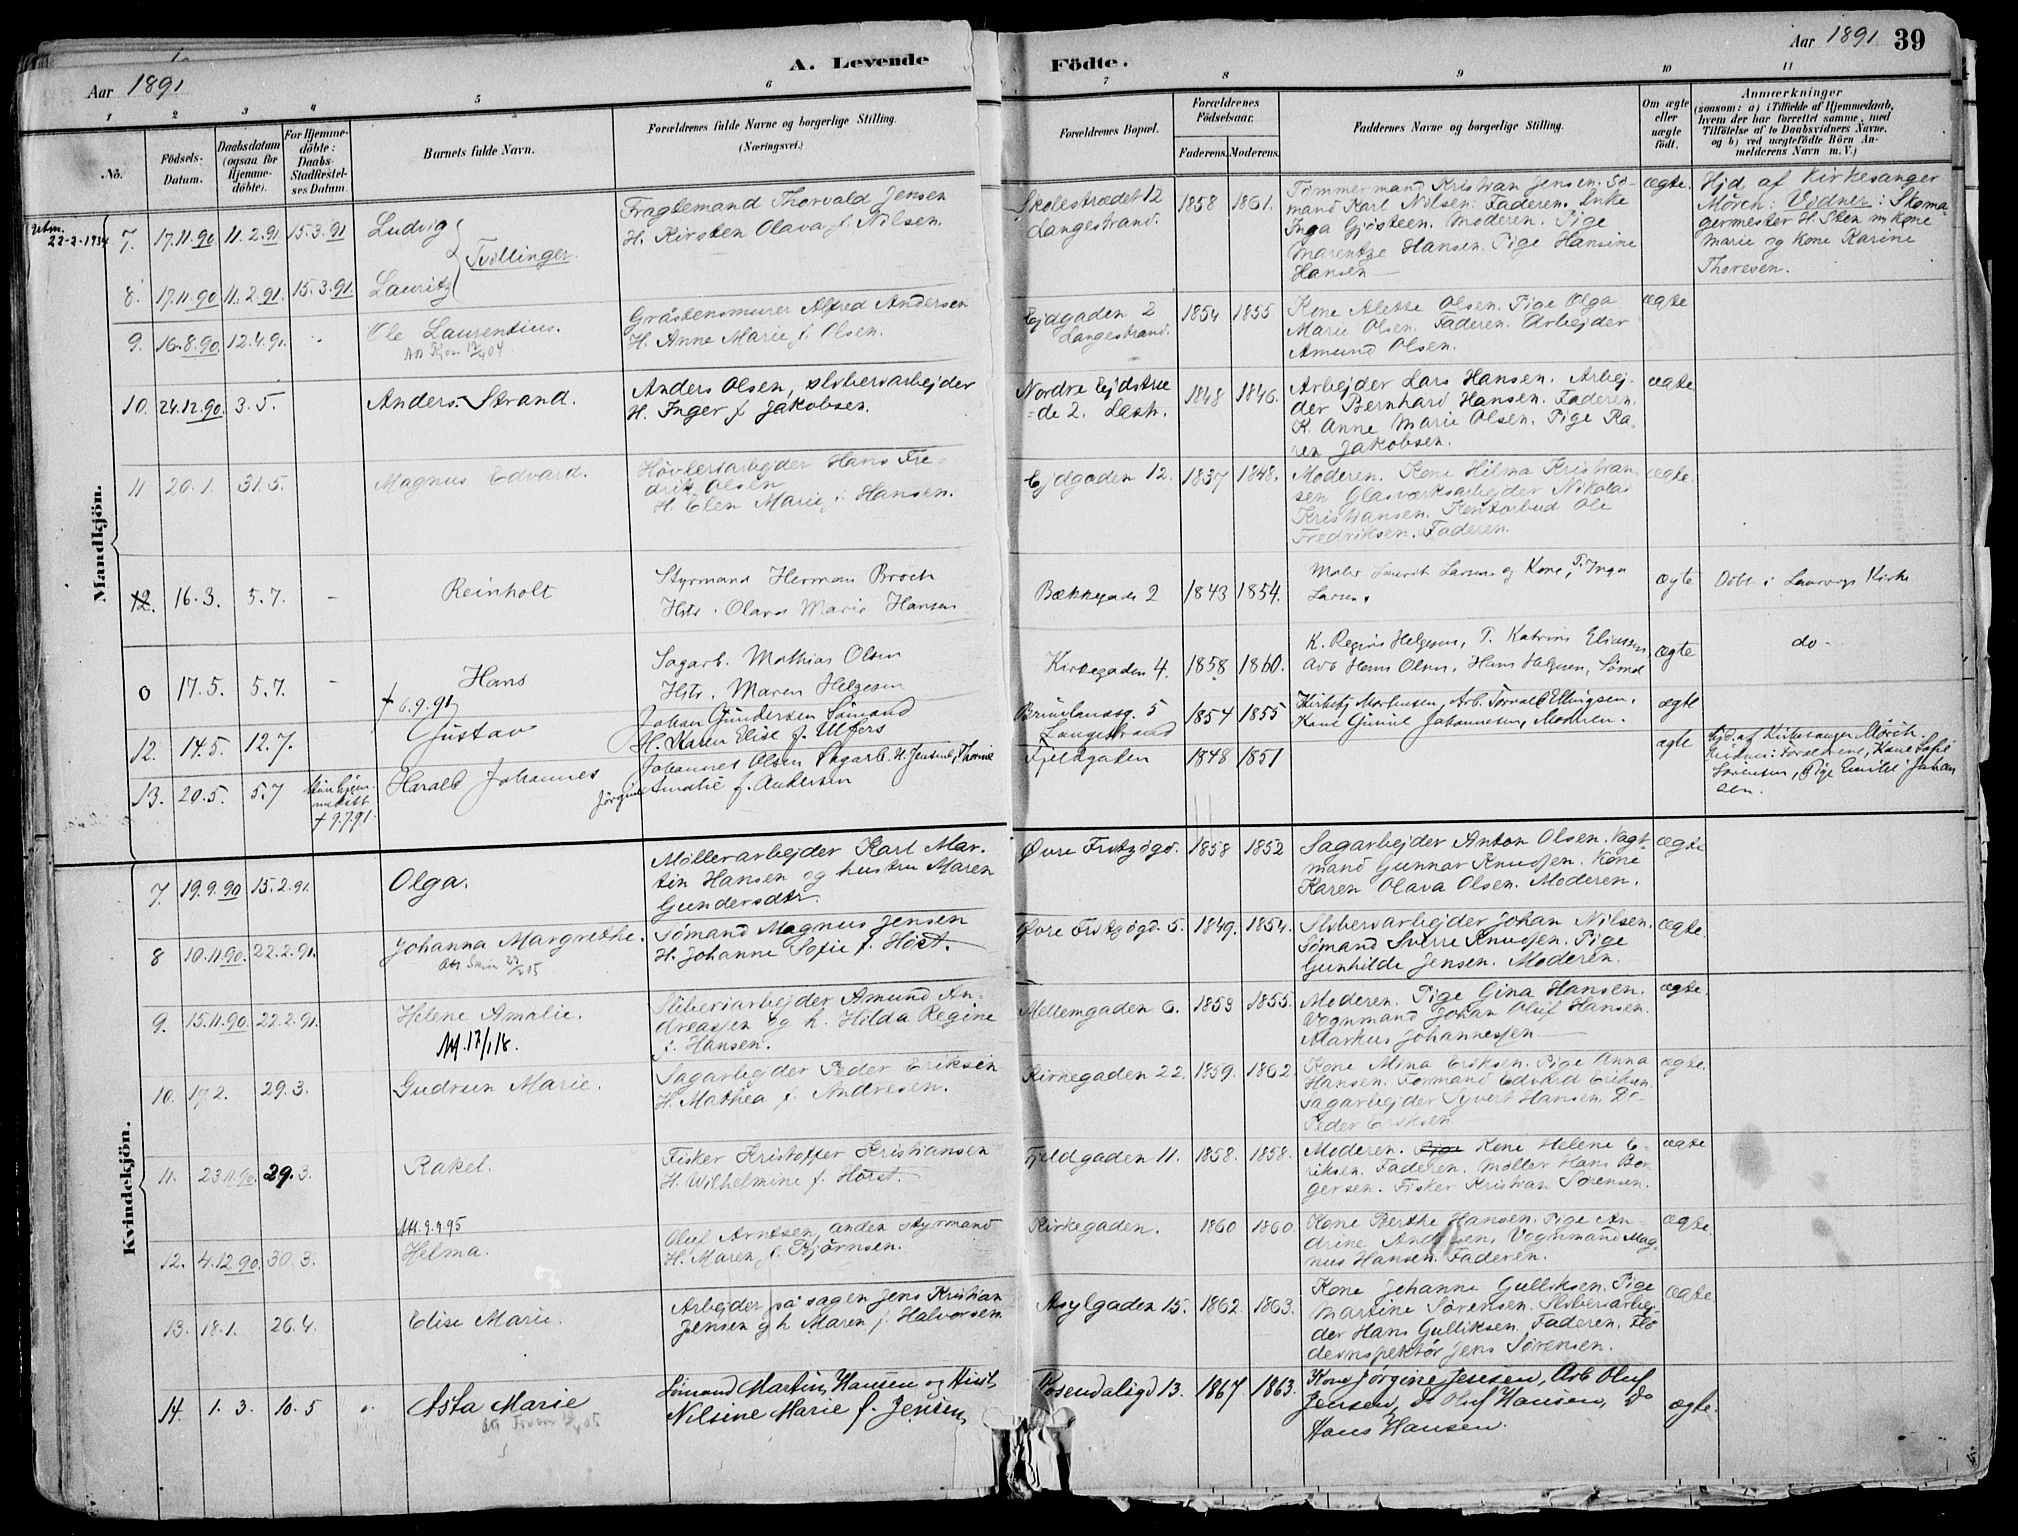 Aar 1891
A. Levende
Fødte.
Aar 1891 39
1 2 3 4 5 6 7 8 9 10 11
No.
Födsels-Datum.
Daabsdatum (ogsaa for Hjemme-döbte).
For Hjemme-döbte: Daabs-Stadfæstel-ses Datum.
Barnets fulde Navn.
Forældrenes fulde Navne og borgerlige Stilling.
(Næringsvei.)
Forældrenes Bopæl.
Forældrenes Födselsaar.
Faderens. Moderens.
Faddernes Navne og borgerlige Stilling.
Om ægte eller uægte födt.
Anmærkninger
(saasom: a) i Tilfælde af Hjemmedaab, hvem der har forrettet samme, med Tilföielse af to Daabsvidners Navne, og b) ved uægtefödte Börn Anmelderens Navn m. V.)
Mandkjön.
22-2-1934
7. 17.11.90 11.2.91 15.3.91 Ludvig
Tvillinger.
Fragtemand Thorvald Jensen
H. Kirsten Olava f. Nilsen.
Skolestrædet 12
Langestrand.
1858 1861.
Tømmermand Kristian Jensen. Sø-
mand Karl Nilsen. Faderen. Enke
Inga Gjøsteen. Moderen. Pige
Marentze Hansen. Pige Hansine
Hansen
ægte.
Hjd. af Kirkesanger
Mørch. Vidner: Skoma-
germester H. Sten m kone
Marie og Kone Karine
Thoresen.
8. 17.11.90 11.2.91. 15.3.91. Lauritz
9. 16.8.90. 12.4.91. Ole Laurentius.
Gråstensmurer Alfred Andersen
H. Anne Marie f. Olsen.
Ejdgaden 2
Langestrand.
1854 1855
Kone Alette Olsen. Pige Olga
Marie Olsen. Faderen. Arbejder
Amund Olsen.
ægte
10. 24.12.90. 3.5. Anders Strand.
Anders Olsen, sliberiarbejder
H. Inger f. Jakobsen.
Nordre Ejdstræ
de 2. Lastr.
1848 1846.
Arbejder Lars Hansen. Arbej-
der Bernhard Hansen. Faderen.
K. Anne Marie Olsen. Pige Ka-
ren Jakobsen.
ægte
11 20.1. 31.5. Magnus Edvard.
Høvleriarbejder Hans Fre-
drik Olsen
H. Elen Marie f. Hansen.
Ejdgaden 12. 1837 1848.
Moderen. Kone Hilma Kristian
sen Glasværksarbejder Nikolai
Kristiansen. Kontorbud Ole
Fredriksen. Faderen.
ægte.
12. 16.3. 5.7. - Reinholt
Styrmand Herman Broch
Hstr. Olava Marie Hansen
Bækkegade 2 1843 1854.
Maler Laurits Larsen og Kone, P. Inga
Larsen
ægte
Døbt i Laurvigs Kirke
0 17.5. 5.7. - Hans
† 6.9.91
Sagarb. Mathias Olsen
Hstr. Maren Helgesen
Kirkegaden 4. 1858 1860.
K. Regine Helgesen, P. Katrine Eliassen
Arb Hans Olsen, Hans Helgesen, Sømd
ægte
do-
12. 14.5. 12.7. Gustav
Johan Gundersen Sømand
H. Karen Elise f. Ulfers
Brunlandsg. 5
Langestrand
1854 1855
Arb. Torvald Ellingsen.
Kone Gunil Johannesen, Moderen.
ægte
13. 20.5. 5.7 Harald Johannes
† 9.7.91
Johannes Olsen Sagarb. H. Jensine Thorine
Jørgine Amalie f. Andersen
Fjeldgaden 1848 1851
ægte
Hjd. af Kirkesanger Mørch.
Vidner: Forældrene, Kone Sofie
Sørensen, Pige Emilie Johan
sen.
Kvindekjön.
7. 19.9.90 15.2.91. Olga.
Møllerarbejder Karl Mar-
tin Hansen og hustru Maren
Gundersdtr.
Øvre Fritzøgd. 1858 1852
Sagarbejder Anton Olsen. Vagt-
mand Gunnar Knudsen. Kone
Karen Olava Olsen. Moderen.
ægte
8 10.11.90. 22.2.91. Johanna Margrethe.
Sømand Magnus Jensen
H. Johanne Sofie f. Høst.
Øvre Fritzøgd. 5. 1849. 1854.
Sliberiarbejder Johan Nilsen.
Sømand Sverre Knudsen. Pige
Gunhilde Jensen. Moderen.
ægte.
9. 15.11.90. 22.2.91. Helene Amalie.
Att. 17/1 18.
Sliberiarbejder Amund An-
dreassen og h. Hilda Regine
f. Hansen.
Mellemgaden 6. 1853 1855.
Moderen. Pige Gina Hansen.
Vognmand Johan Oluf Hansen.
Markus Johannessen
ægte.
10. 17.2. 29.3. Gudrun Marie.
Sagarbejder Peder Eriksen
H. Mathea f. Andresen.
Kirkegaden 22. 1859. 1862
Kone Mina Eriksen. Pige Anna
Hansen. Formand Edvard Eriksen.
Sagarbejder Syvert Hansen. Do
Peder Eriksen
ægte.
11. 23.11.90. 29.3. Rakel.
Fisker Kristoffer Kristiansen
H. Wilhelmine f. Horst.
Fjeldgaden 11. 1858. 1858.
Moderen. Kone Helene E-
riksen. Faderen. Møller Hans Bor
gersen. Fisker Kristian Sørensen.
ægte
Att. 9.9.95
12. 4.12.90. 30.3. Helma.
Oluf Arntsen, anden styrmand
H. Maren f. Bjørnsen.
Kirkegaden. 1860 1860
Kone Berthe Hansen. Pige An-
drine Andersen, Vognmand Mag-
nus Hansen. Faderen.
ægte.
13. 18.1. 26.4. Elise Marie.
Arbejder på sagen Jens Kristian
Jensen og h Maren f. Halvorsen.
Asylgaden 15. 1862. 1863.
Kone Johanne Gulliksen. Pige
Martine Sørensen. Sliberiarbej-
der Hans Gulliksen. Faderen. Flø
deinspektør Jens Sørensen.
ægte
14. 1.3. 10.5 Asta Marie
Sømand Martin Hansen og Hust.
Nilsine Marie f. Jensen
Rosendalsgd 13. 1867 1863.
Kone Jørgine Jensen, Arb Oluf
Jensen, Do Oluf Hansen, Do
Hans Hansen.
ægte.